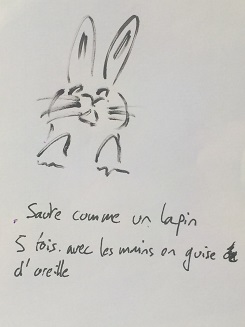 . Saute comme un lapin
5 fois. avec les mains en guise de
d'oreille